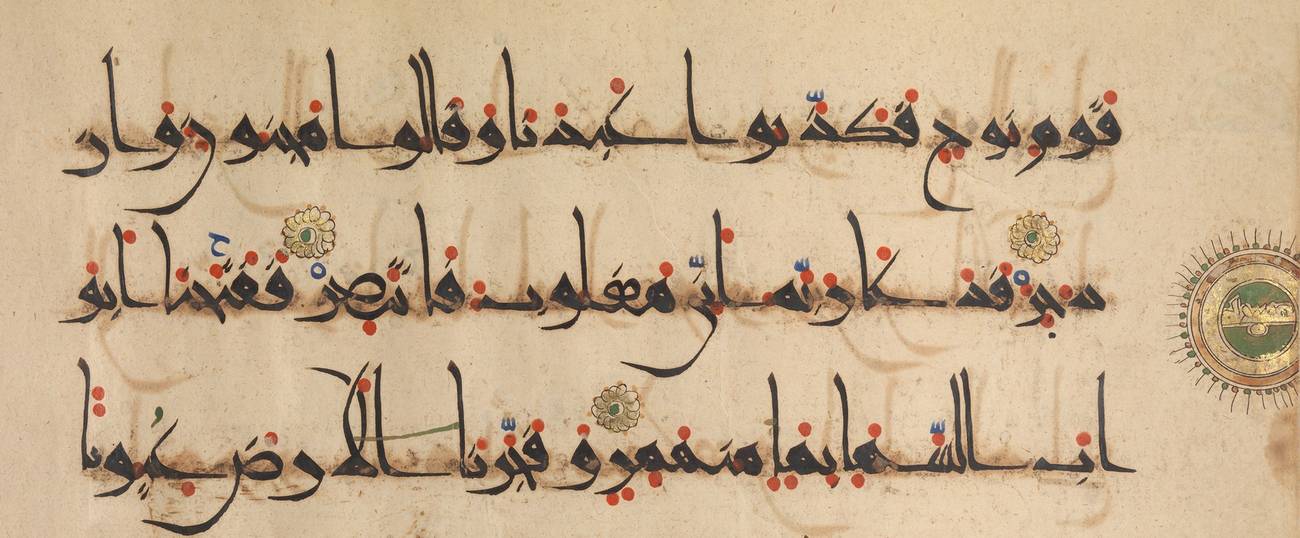 قَوْمُ نُوحٍ فَكَذَّبُوا عَبْدَنَا وَقَالُوا مَجْنُونٌ وَازْ
دُجِرَ فَدَعَا رَبَّهُ أَنِّي مَغْلُوبٌ فَانتَصِرْ فَفَتَحْنَا أَبْوَ
ابَ السَّمَاءِ بِمَاءٍ مُنْهَمِرٍ وَفَجَّرْنَا الْأَرْضَ عُيُونًا